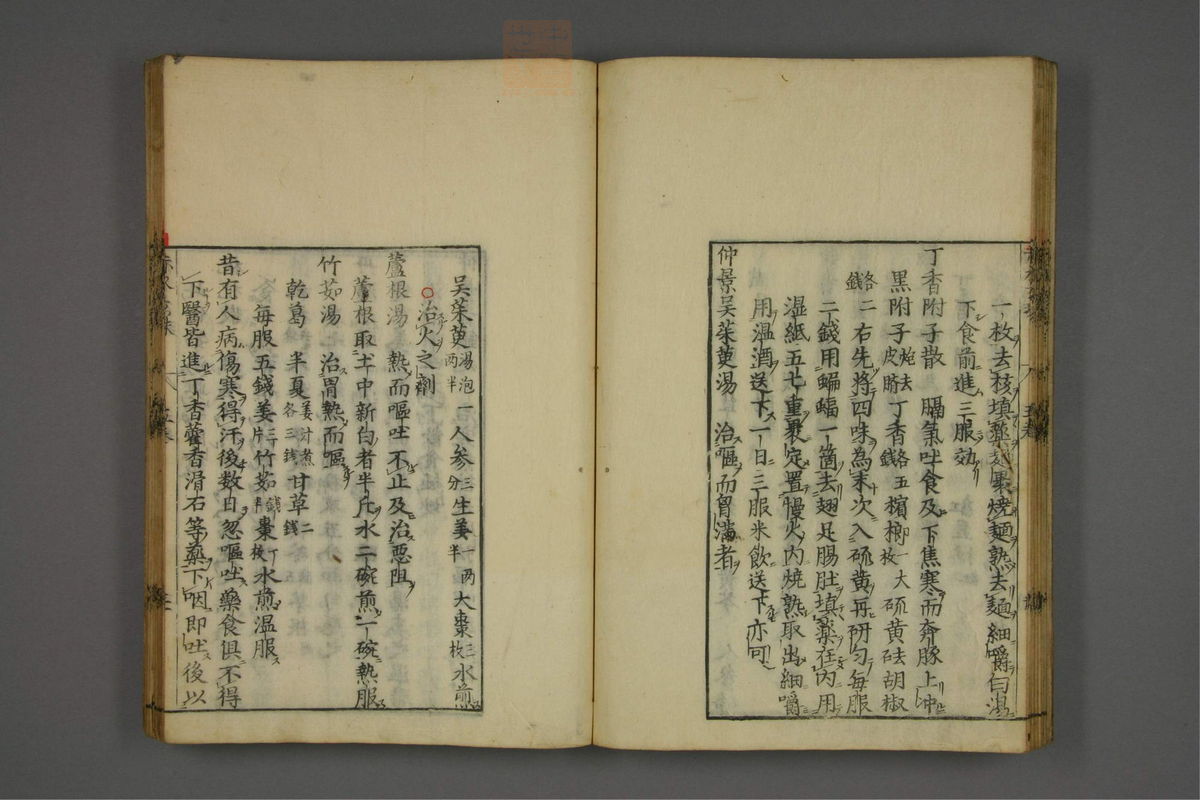 一枚去核填藥麪裹燒麵熟去麵細嚼白湯
下食前進三服効
丁香附子散 膈氣吐食及下焦寒而奔豚上冲
黑附子炮去皮臍丁香五錢檳榔一大枚硫黄砝胡椒
各二錢右先将四味為末次入硫黄再研匀每服
二錢用蝙蝠一箇去翅足腸肚填藥在内用
湿紙五七重裹定置慢火内燒熟取出細嚼
用温酒送下一日三服米飲送下亦可
仲景吴茱萸湯 治嘔而胷滿者
吴茱萸湯泡一两半人参三分生姜一两半大棗三枚水煎
○治火之劑
蘆根湯 熱而嘔吐不止及治惡阻
蘆根取土中新白者半斤水二碗煎一碗熱服
竹茹湯 治胃熱而嘔
乾葛 半夏姜汁煮各三錢甘草二錢
每服五錢姜三片竹茹錢半棗一枚水煎温服
昔有人病傷寒得汗後数日忽嘔吐藥食俱不得
下醫皆進丁香藿香滑石等藥下咽即吐後以